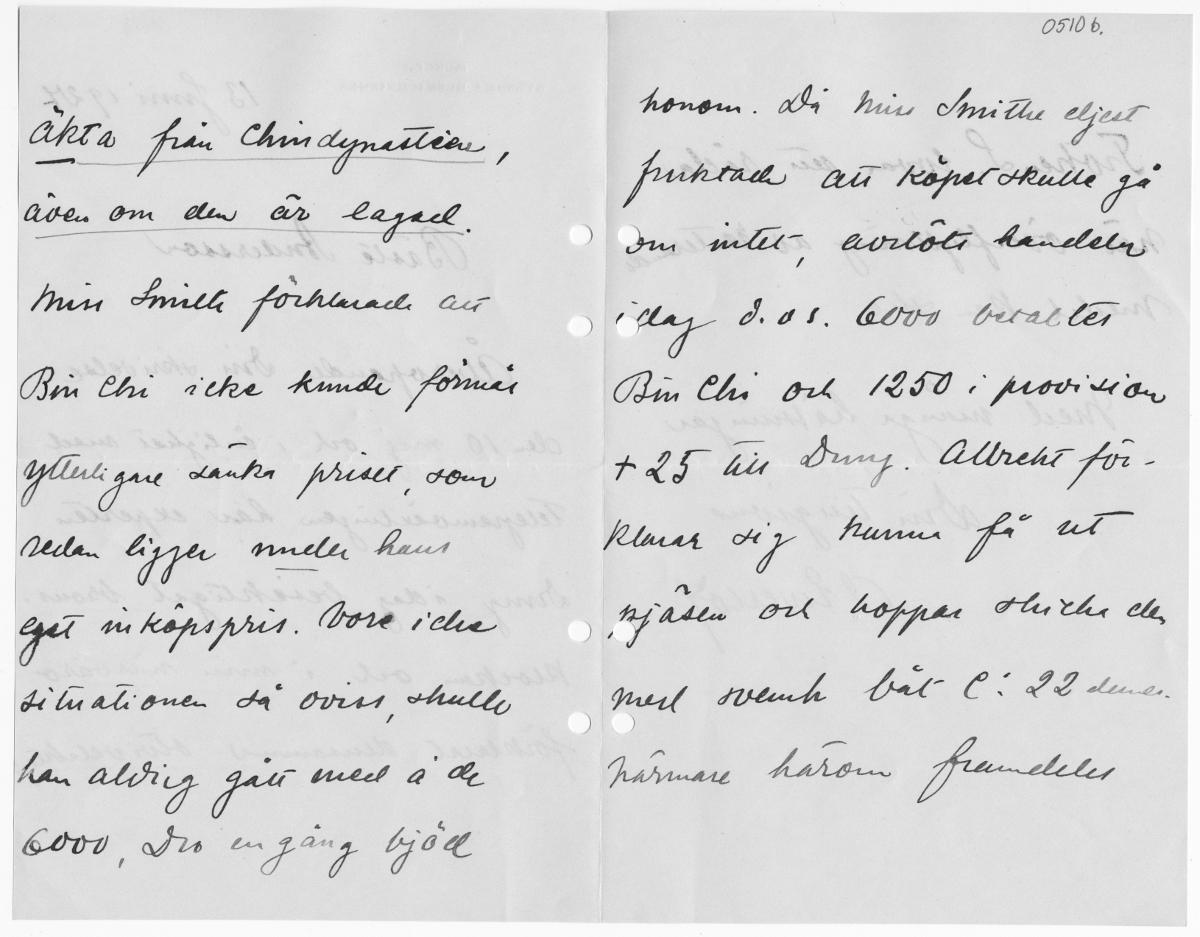 05106.
äkta från Chindynastien,
även om den är lagad.
Miss Smith förklarade att
Bin Chi icke kunde förmås
ytterligare sänka priset, som
redan ligger under hans
eget inköpspris. Vore icke
situationen så oviss, skulle
han aldrig gått med å de
6000, Dro en gång bjöd
honom. Då Miss Smith eljest
fruktade att köpet skulle gå
om intet, avslöts handeln
idag d.v.s. 6000 betaltes
Bin Chi och 1250 i provision
+ 25 till Drng. Albrecht för-
klarar sig kunna få ut
pjäsen och hoppas skicka den
med svensk båt C: 22 dennes.
närmare härom framdeles